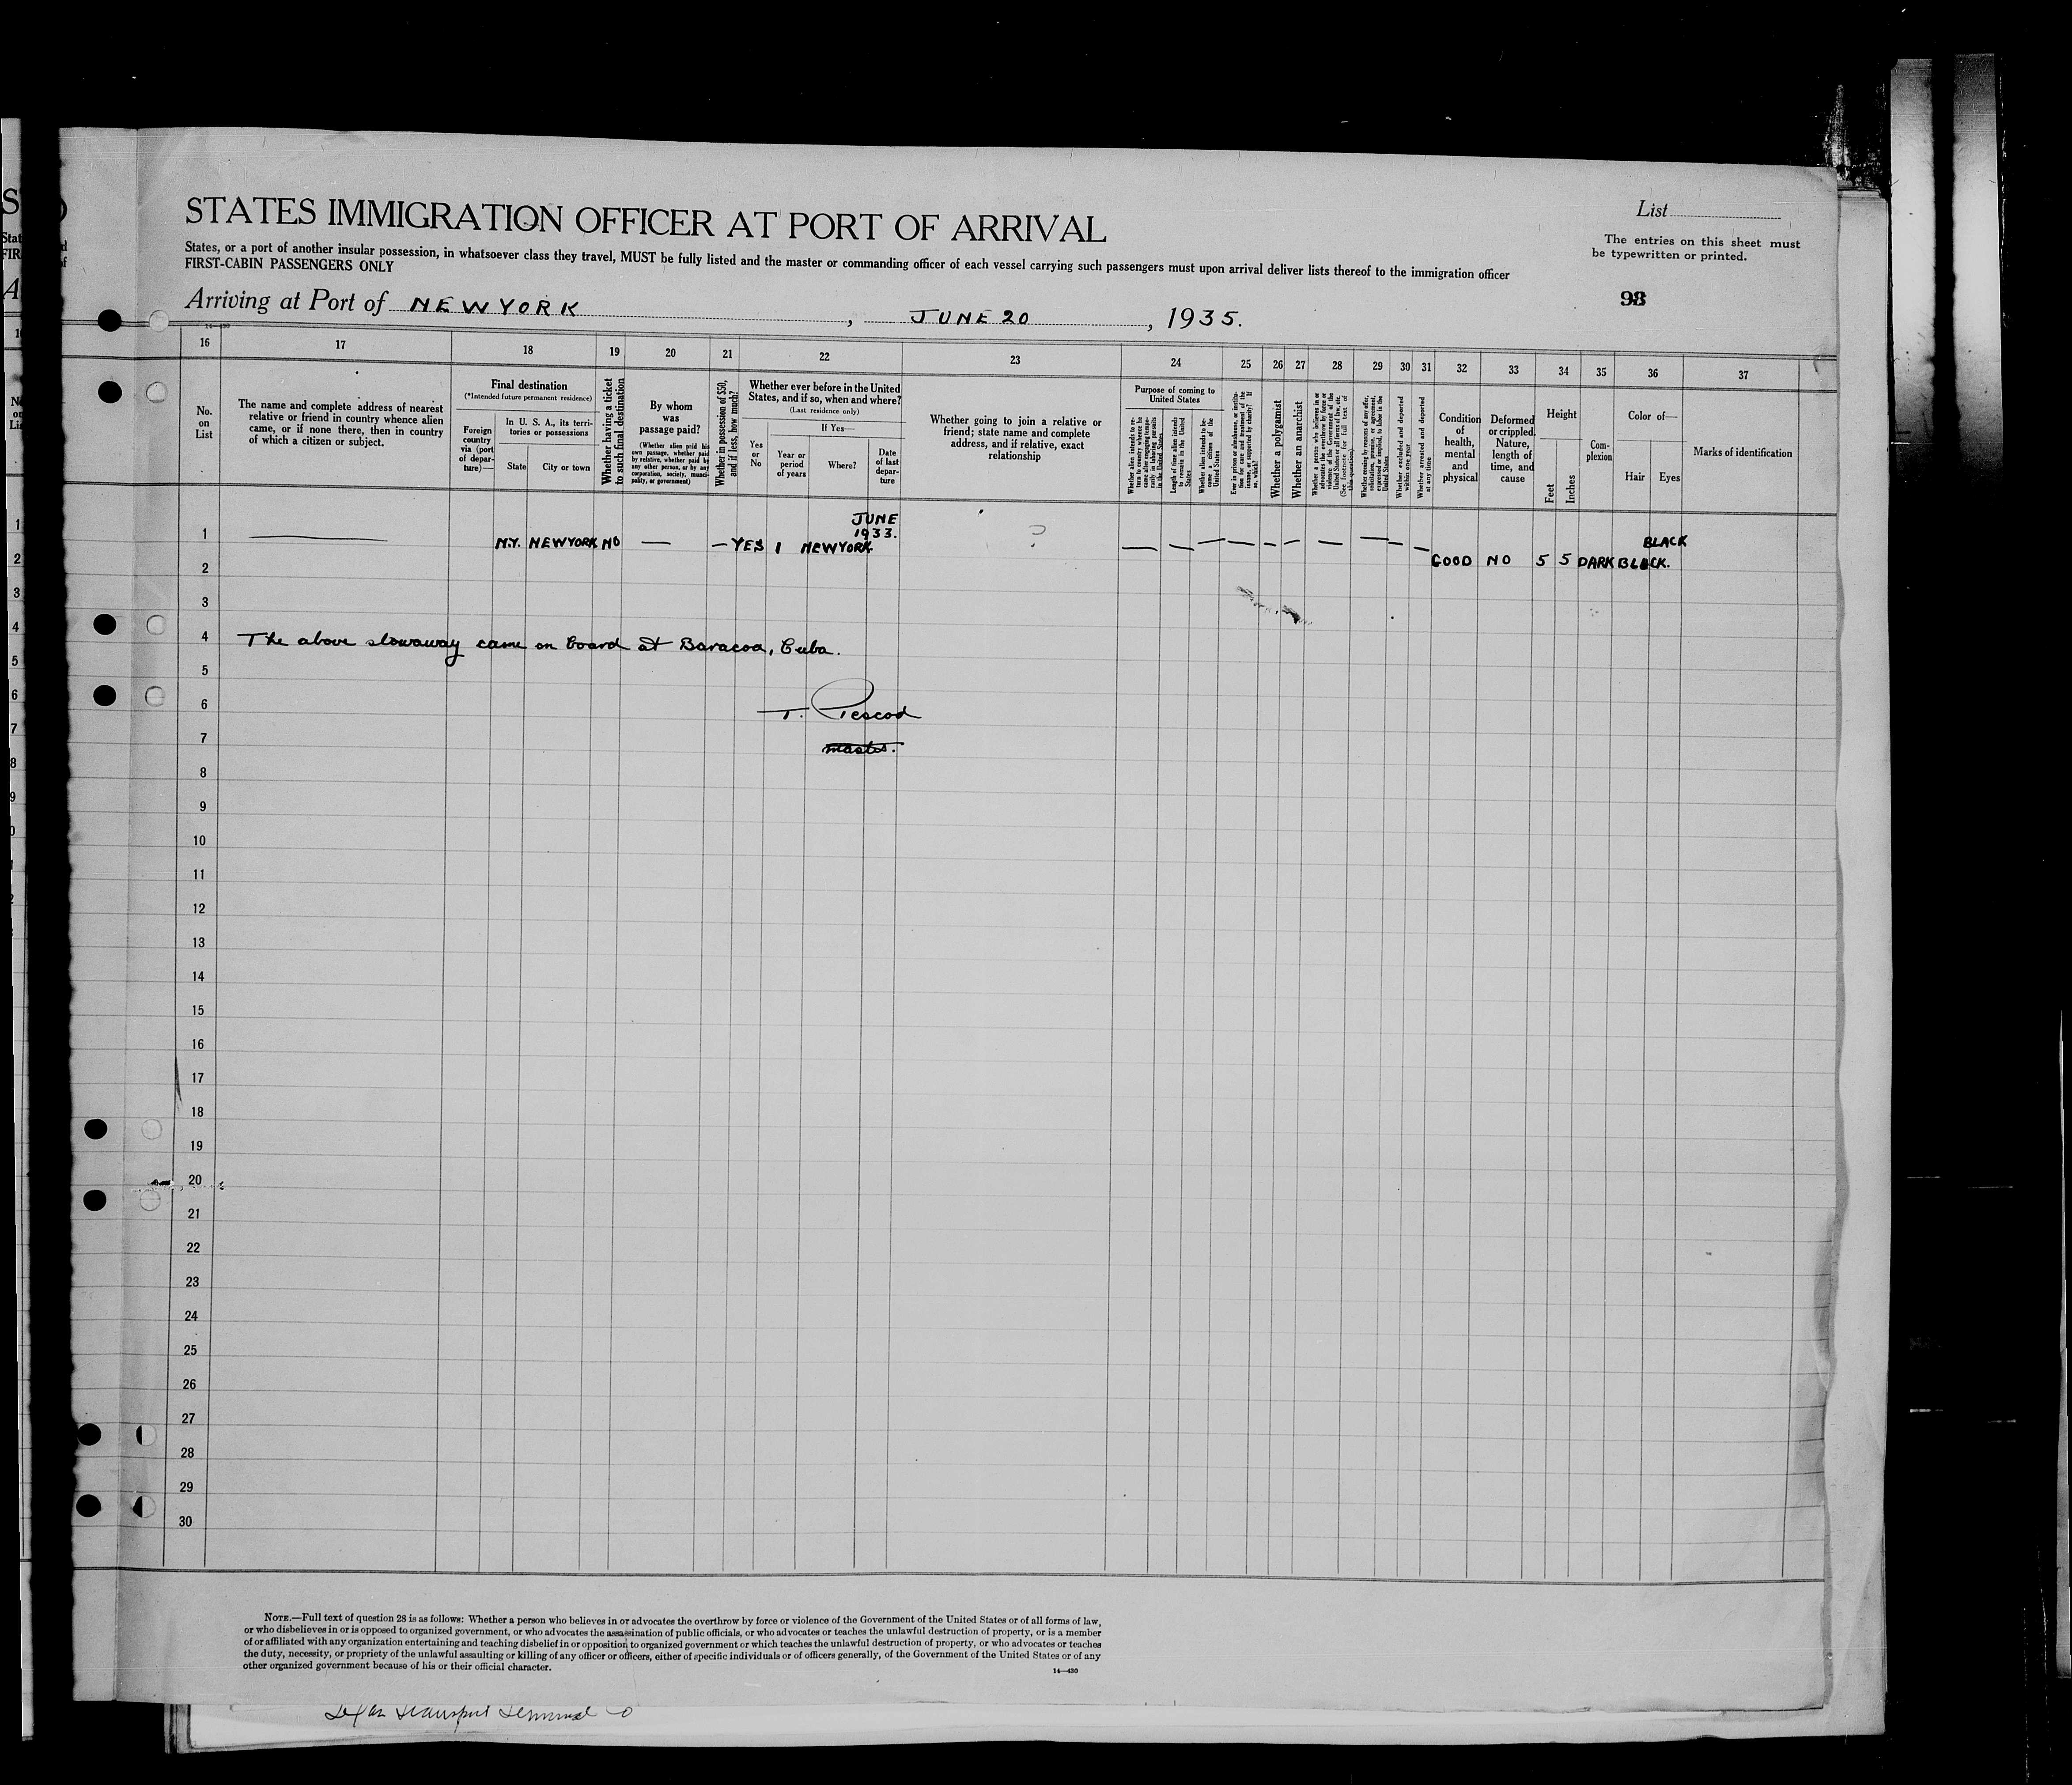 STATES IMMIGRATION OFFICER AT PORT OF ARRIVAL
List
States, or a port of another insular possession, in whatsoever class they travel, MUST be fully listed and the master or commanding officer of each vessel carrying such passengers must upon arrival deliver lists thereof to the immigration officer
FIRST-CABIN PASSENGERS ONLY
The entries on this sheet must
be typewritten or printed.
98
Arriving at Port of NEW YORK, JUNE 20, 1935.
14—430
16 17 18 19 20 21 22 23 24 25 26 27 28 29 30 31 32 33 34 35 36 37
No.
on
List
The name and complete address of nearest
relative or friend in country whence alien
came, or if none there, then in country
of which a citizen or subject.
Final destination
(*Intended future permanent residence)
Foreign
country
via (port
of depar-
ture)—
In U. S. A., its terri-
tories or possessions
State
City or town
Whether having a ticket
to such final destination
By whom
was
passage paid?
(Whether alien paid his
own passage, whether paid
by relative, whether paid by
any other person, or by any
corporation, society, munici-
pality, or government)
Whether in possession of $50,
and if less, how much?
Whether ever before in the United
States, and if so, when and where?
(Last residence only)
Yes
or
No
If Yes—
Year or
period
of years
Where?
Date
of last
depar-
ture
Whether going to join a relative or
friend; state name and complete
address, and if relative, exact
relationship
Purpose of coming to
United States
Whether alien intends to re-
turn to country whence he
came after engaging tempo-
rarily in laboring pursuits
in the United States
Length of time alien intends
to remain in the United
States
Whether alien intends to be-
come a citizen of the
United States
Whether a polygamist
Whether an anarchist
Whether excluded and deported
within one year
Whether arrested and deported
at any time
Condition
of
health,
mental
and
physical
Deformed
or crippled.
Nature,
length of
time, and
cause
Height
Feet
Inches
Com-
plexion
Color of—
Hair
Eyes
Marks of identification
1 — N.Y. NEW YORK NO — — YES 1 NEW YORK JUNE 1933. ? — — — — — — — — — — GOOD NO 5 5 DARK BLACK. BLACK
2
3
4 The above stowaway came on board at Baracoa, Cuba.
5
6 T. Pescod
7 master.
8
9
10
11
12
13
14
15
16
17
18
19
20
21
22
23
24
25
26
27
28
29
30
NOTE.—Full text of question 28 is as follows: Whether a person who believes in or advocates the overthrow by force or violence of the Government of the United States or of all forms of law,
or who disbelieves in or is opposed to organized government, or who advocates the assassination of public officials, or who advocates or teaches the unlawful destruction of property, or is a member
of or affiliated with any organization entertaining and teaching disbelief in or opposition to organized government or which teaches the unlawful destruction of property, or who advocates or teaches
the duty, necessity, or propriety of the unlawful assaulting or killing of any officer or officers, either of specific individuals or of officers generally, of the Government of the United States or of any
other organized government because of his or their official character.
14—430